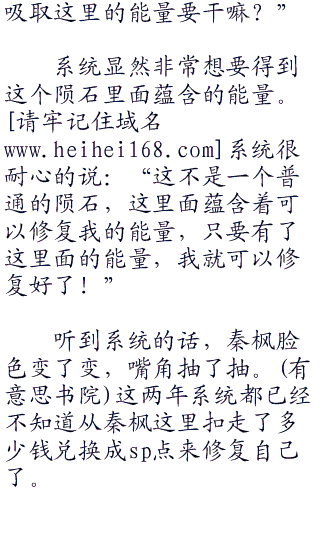 吸取这里的能量要干嘛？”
系统显然非常想要得到
这个陨石里面蕴含的能量。
[请牢记住域名
www.heihei168.com]系统很
耐心的说：“这不是一个普
通的陨石，这里面蕴含着可
以修复我的能量，只要有了
这里面的能量，我就可以修
复好了！”
听到系统的话，秦枫脸
色变了变，嘴角抽了抽。(有
意思书院)这两年系统都已经
不知道从秦枫这里扣走了多
少钱兑换成sp点来修复自己
了。